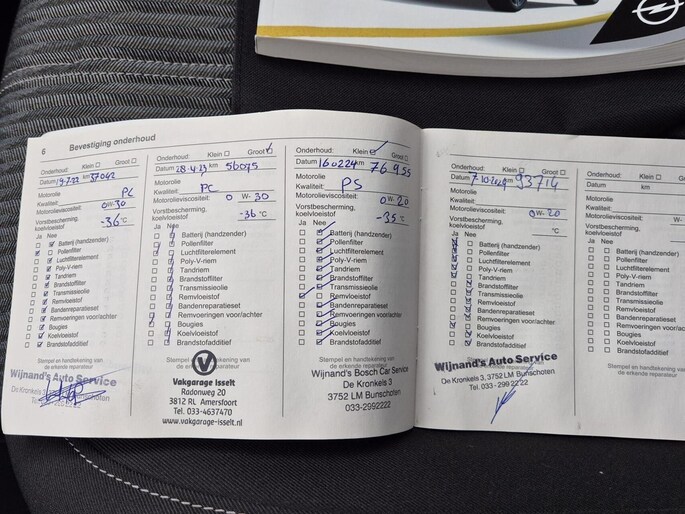 6 Bevestiging onderhoud
Onderhoud: Klein ☐ Groot ☐
Datum 19-7-22 km 37042
Motorolie
Kwaliteit: PC
Motorolieviscositeit: 0W-30
Vorstbescherming, koelvloeistof -36 °C
Ja Nee
Batterij (handzender)
Pollenfilter
Luchtfilterelement
Poly-V-riem
Tandriem
Brandstoffilter
Transmissieolie
Remvloeistof
Bandenreparatieset
Remvoeringen voor/achter
Bougies
Koelvloeistof
Brandstofadditief
Stempel en handtekening van de erkende reparateur
Wijnand's Auto Service
De Kronkels 3, 3752 LM Bunschoten
Onderhoud: Klein ☐ Groot ☑
Datum 28-4-23 km 56075
Motorolie
Kwaliteit: PC
Motorolieviscositeit: 0 W-30
Vorstbescherming, koelvloeistof -36 °C
Ja Nee
Batterij (handzender)
Pollenfilter
Luchtfilterelement
Poly-V-riem
Tandriem
Brandstoffilter
Transmissieolie
Remvloeistof
Bandenreparatieset
Remvoeringen voor/achter
Bougies
Koelvloeistof
Brandstofadditief
Stempel en handtekening van de erkende reparateur
Vakgarage Isselt
Radonweg 20
3812 RL Amersfoort
Tel. 033-4637470
www.vakgarage-isselt.nl
Onderhoud: Klein ☑ Groot ☐
Datum 160224 km 76955
Motorolie
Kwaliteit: PS
Motorolieviscositeit: 0W-20
Vorstbescherming, koelvloeistof -35 °C
Ja Nee
Batterij (handzender)
Pollenfilter
Luchtfilterelement
Poly-V-riem
Tandriem
Brandstoffilter
Transmissieolie
Remvloeistof
Bandenreparatieset
Remvoeringen voor/achter
Bougies
Koelvloeistof
Brandstofadditief
Stempel en handtekening van de erkende reparateur
Wijnand's Bosch Car Service
De Kronkels 3
3752 LM Bunschoten
033-2992222
Onderhoud: Klein ☐ Groot ☐
Datum 7-10-2024 km 93714
Motorolie
Kwaliteit:
Motorolieviscositeit: 0W-20
Vorstbescherming, koelvloeistof °C
Ja Nee
Batterij (handzender)
Pollenfilter
Luchtfilterelement
Poly-V-riem
Tandriem
Brandstoffilter
Transmissieolie
Remvloeistof
Bandenreparatieset
Remvoeringen voor/achter
Bougies
Koelvloeistof
Brandstofadditief
Stempel en handtekening van de erkende reparateur
Wijnand's Auto Service
De Kronkels 3, 3752 LM Bunschoten
Tel. 033 - 299 22 22
Onderhoud: Klein ☐
Datum km
Motorolie
Kwaliteit:
Motorolieviscositeit: W-
Vorstbescherming, koelvloeistof
Ja Nee
Batterij (handzender)
Pollenfilter
Luchtfilterelement
Poly-V-riem
Tandriem
Brandstoffilter
Transmissieolie
Remvloeistof
Bandenreparatieset
Remvoeringen voor/achter
Bougies
Koelvloeistof
Brandstofadditief
Stempel en handtekening
de erkende reparateur